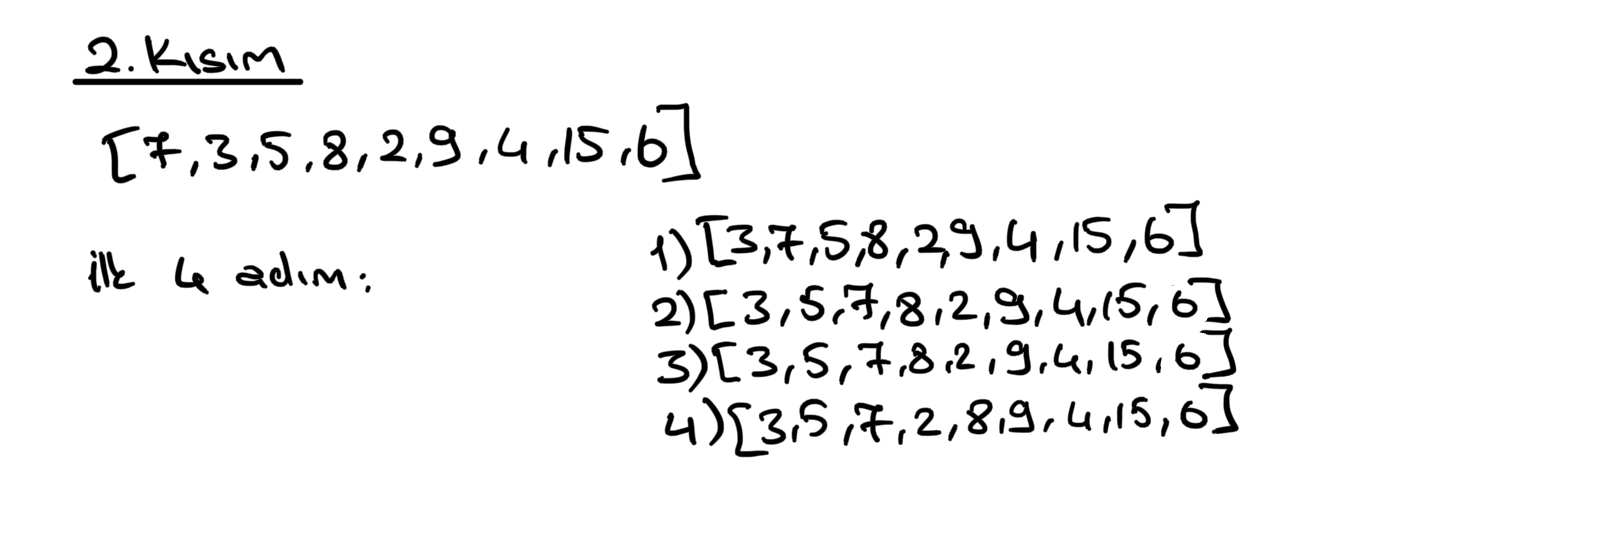 2. Kısım
[7,3,5,8,2,9,4,15,6]
ilk 4 adım:
1) [3,7,5,8,2,9,4,15,6]
2) [3,5,7,8,2,9,4,15,6]
3) [3,5,7,8,2,9,4,15,6]
4) [3,5,7,2,8,9,4,15,6]